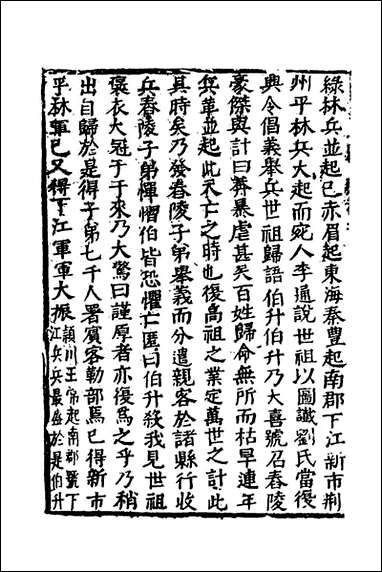 綠林兵並起已赤眉起東海秦豐起南郡下江新市荆
州平林兵大起而宛人李通說世祖以圖讖劉氏當復
興令倡義舉兵世祖歸語伯升伯升乃大喜號召舂陵
豪傑與計曰莽暴虐甚矣百姓歸命無所而枯旱連年
兵革並起此天亡之時也復高祖之業定萬世之計此
其時矣乃發舂陵子弟舉義而分遣親客於諸縣行收
兵舂陵子弟憚懾伯皆恐懼亡匿曰伯升殺我見世祖
褒衣大冠于于來乃大驚曰謹厚者亦復為之乎乃稍
出自歸於是得子弟七千人署賓客勒部馬已得新市
平林軍已又得下江軍軍大振潁川王常起南郡號下
江兵兵最盛於是伯升